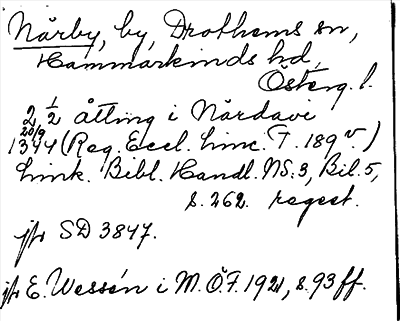 Nårby, by, Drothems sn,
Hammarkinds hd,
Österg. l.
2 1/2 åtting i Nårdavi
20/9
1344 (Reg. Eccl. Linc. T. 189 v.)
Link. Bibl. Handl. NS:3, Bil. 5,
s. 262. regest.
jfr SD 3847.
jfr E. Wessén i M.Ö.F. 1921, s. 93 ff.